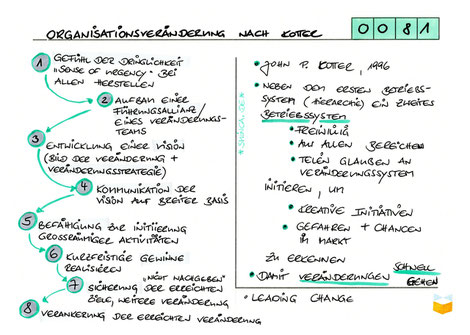 ORGANISATIONSVERÄNDERUNG NACH KOTTER
0081
1 GEFÜHL DER DRINGLICHKEIT
"SENSE OF URGENCY" BEI
ALLEN HERSTELLEN
2 AUFBAU EINER
FÜHRUNGSALLIANZ/
EINES VERÄNDERUNGS-
TEAMS
3
ENTWICKLUNG EINER VISION
(BILD DER VERÄNDERUNG +
VERÄNDERUNGSSTRATEGIE)
4 KOMMUNIKATION DER
VISION AUF BREITER BASIS
5
BEFÄHIGUNG ZUR INITIIERUNG
GROSSRÄUMIGER AKTIVITÄTEN
6 KURZFRISTIGE GEWINNE
REALISIEREN
7 "NICHT NACHGEBEN"
SICHERUNG DER ERREICHTEN
ZIELE, WEITERE VERÄNDERUNG
8
VERANKERUNG DER ERREICHTEN VERÄNDERUNG
• JOHN P. KOTTER, 1996
• NEBEN DEM ERSTEN BETRIEBS-
SYSTEM (HIERARCHIE) EIN ZWEITES
BETRIEBSSYSTEM
• FREIWILLIG
• AUS ALLEN BEREICHEN
• TEILEN GLAUBEN AN
VERÄNDERUNGSSYSTEM
INITIIEREN, UM
• KREATIVE INITIATIVEN
• GEFAHREN + CHANCEN
IM MARKT
ZU ERKENNEN
• DAMIT VERÄNDERUNGEN SCHNELL
GEHEN
• LEADING CHANGE